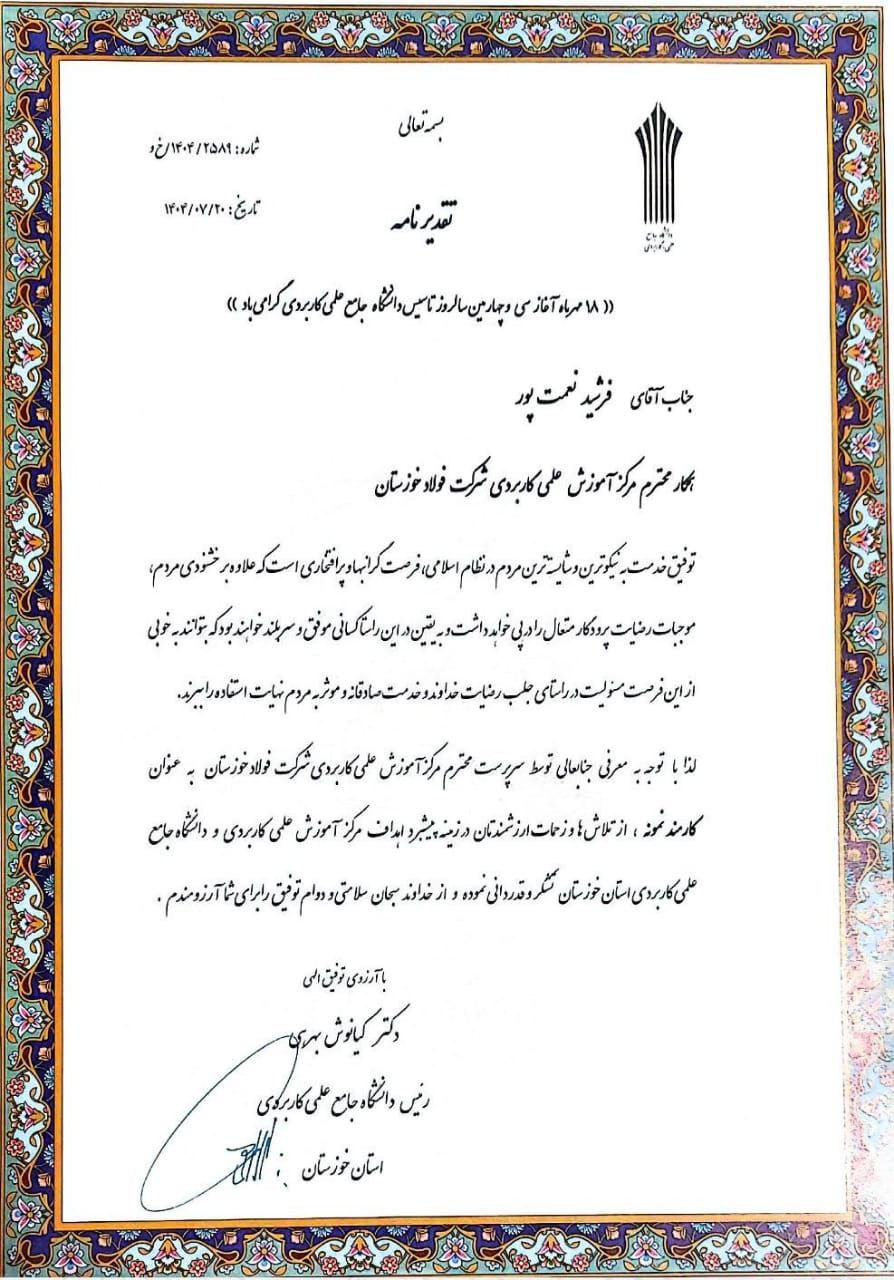 بسمه تعالی
شماره: ۱۴۰۴/۲۵۸۹/خ و
تاریخ: ۱۴۰۴/۰۷/۲۰
دانشگاه جامع
علمی کاربردی
تقدیر نامه
(( ۱۸ مهرماه آغاز سی و چهارمین سالروز تاسیس دانشگاه جامع علمی کاربردی گرامی باد ))
جناب آقای فرشید نعمت پور
همکار محترم مرکز آموزش علمی کاربردی شرکت فولاد خوزستان
توفیق خدمت به نیکوترین و شایسته ترین مردم در نظام اسلامی، فرصت گرانبها و پرافتخاری است که علاوه بر خشنودی مردم،
موجبات رضایت پرودکار متعال را در پی خواهد داشت و به یقین در این راستا کسانی موفق و سربلند خواهند بود که بتوانند به خوبی
از این فرصت مسئولیت در راستای جلب رضایت خداوند و خدمت صادقانه و موثر به مردم نهایت استفاده را ببرند.
لذا با توجه به معرفی جنابعالی توسط سرپرست محترم مرکز آموزش علمی کاربردی شرکت فولاد خوزستان به عنوان
کارمند نمونه ، از تلاش ها و زحمات ارزشمندتان در زمینه پیشبرد اهداف مرکز آموزش علمی کاربردی و دانشگاه جامع
علمی کاربردی استان خوزستان تشکر و قدردانی نموده و از خداوند سبحان سلامتی و دوام توفیق را برای شما آرزومندم .
با آرزوی توفیق الهی
دکتر کیانوش بهری
رئیس دانشگاه جامع علمی کاربردی
استان خوزستان